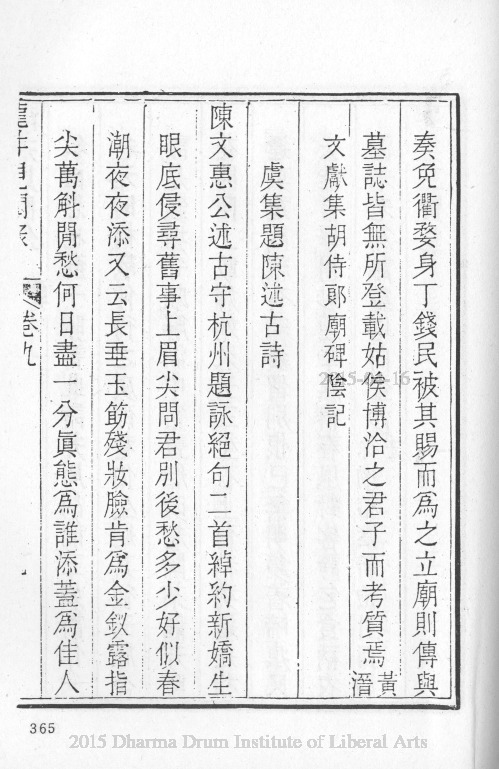 奏免衢婺身丁錢民被其賜而爲之立廟則傳與
墓誌皆無所登載姑俟博洽之君子而考質焉黃溍
文獻集胡侍郎廟碑陰記
虞集題陳述古詩
陳文惠公述古守杭州題詠絕句二首綽約新嬌生
眼底侵尋舊事上眉尖問君別後愁多少好似春
潮夜夜添又云長垂玉筯殘妝臉肯爲金釵露指
尖萬斛閒愁何日盡一分眞態爲誰添蓋爲佳人
卷九
365
2015 Dharma Drum Institute of Liberal Arts